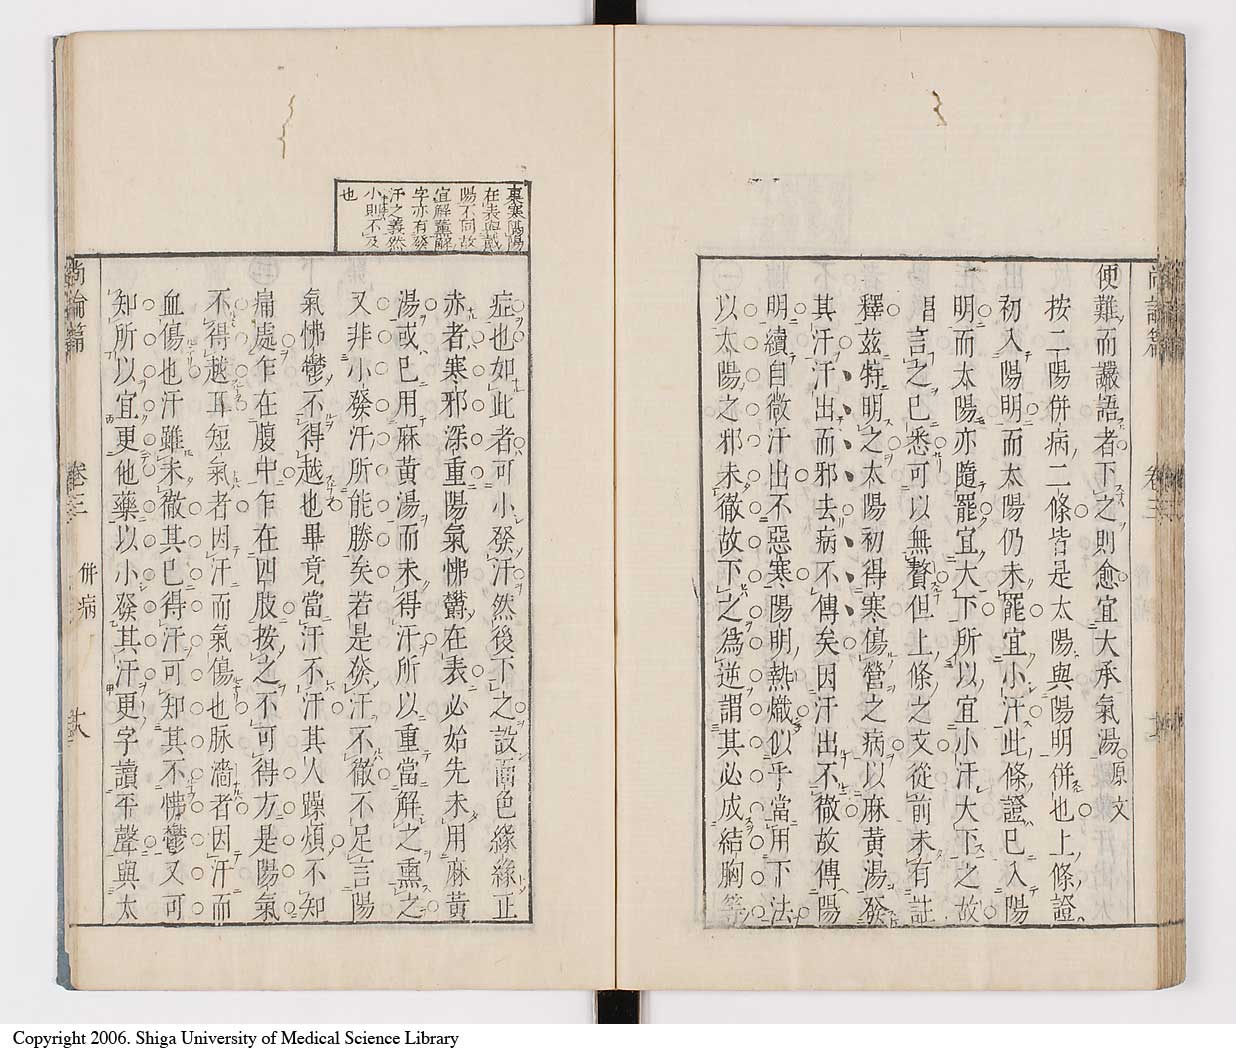 便難而譫語者下之則愈宜大承氣湯原文
按二陽併病二條皆是太陽與陽明併也上條證
初入陽明而太陽仍未罷宜小汗此條證已入陽
明而太陽亦隨罷宜大下所以宜小汗大下之故
昌言之已悉可以無贅但上條之文從前未有註
釋茲特明之太陽初得寒傷營之病以麻黃湯發
其汗汗出而邪去病不傳矣因汗出不徹故傳陽
明續自微汗出不惡寒陽明熱熾似乎當用下法
以太陽之邪未徹故下之爲逆謂其必成結胸等
尚論篇 卷三
裏寒陽陽
在表與戴
陽不同故
宜解薰解
字亦有發
汗之義然
小則不及
也
症也如此者可小發汗然後下之設面色緣緣正
赤者寒邪深重陽氣怫鬱在表必始先未用麻黃
湯或已用麻黃湯而未得汗所以重當解之熏之
又非小發汗所能勝矣若是發汗不徹不足言陽
氣怫鬱不得越也畢竟當汗不汗其人躁煩不知
痛處乍在腹中乍在四肢按之不可得方是陽氣
不得越耳短氣者因汗而氣傷也脉濇者因汗而
血傷也汗雖未徹其已得汗可知其不怫鬱又可
知所以宜更他藥以小發其汗更字讀平聲與太
尚論篇 卷三 併病 廿八
Copyright 2006. Shiga University of Medical Science Library